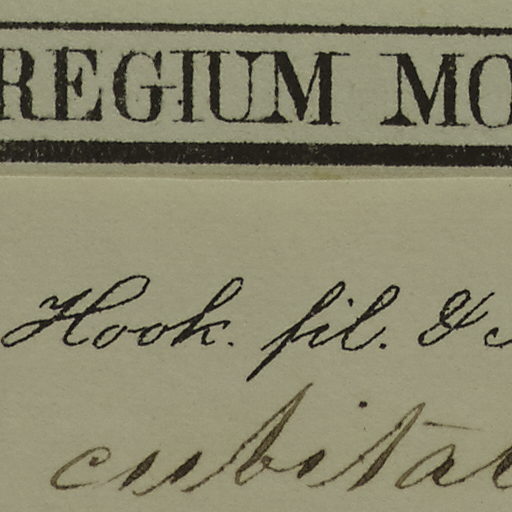 REGIUM MO
Hook. fil. &
cubitat